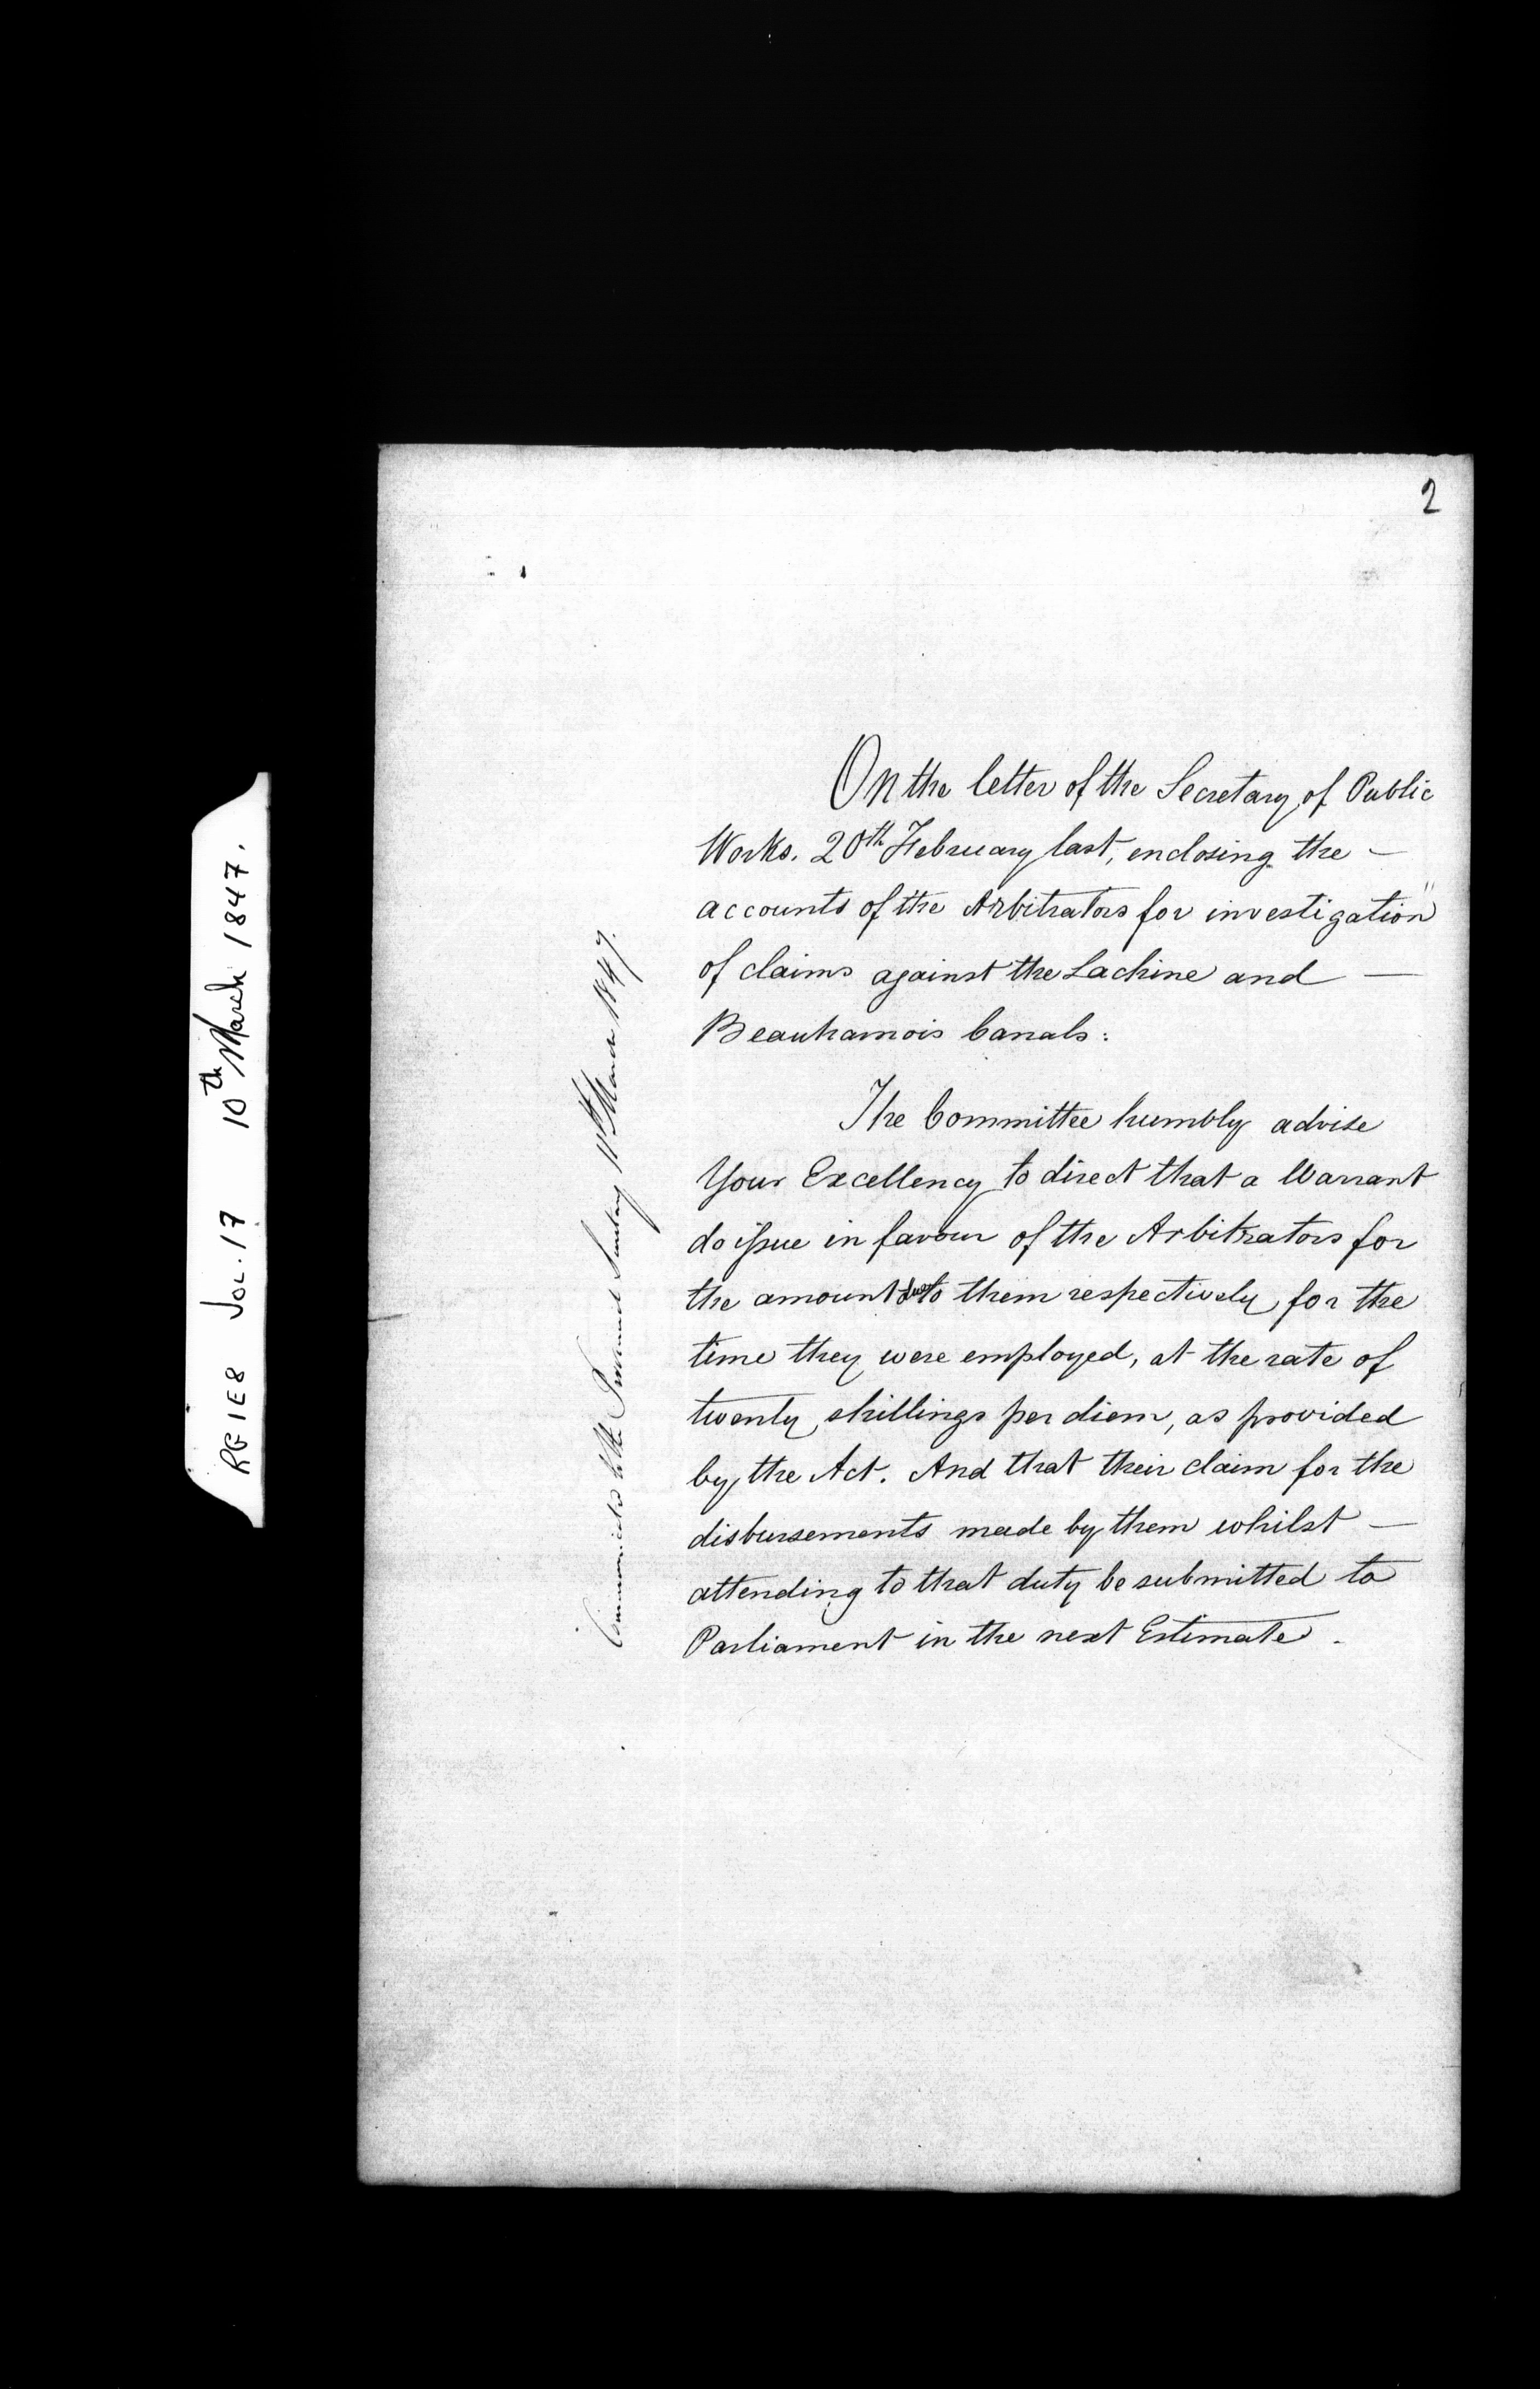 2
RG 1 E 8 Vol. 17 10th March 1847.
Communicated to the Provincial Secretary 11th March 1847.
On the letter of the Secretary of Public
Works. 20th February last, enclosing the —
accounts of the Arbitrators for investigation"
of claims against the Lachine and —
Beauharnois Canals:
The Committee humbly advise
Your Excellency to direct that a Warrant
do issue in favour of the Arbitrators for
the amount due to them respectively, for the
time they were employed, at the rate of
twenty shillings per diem, as provided
by the Act. And that their claim for the
disbursements made by them whilst —
attending to that duty be submitted to
Parliament in the next Estimate.